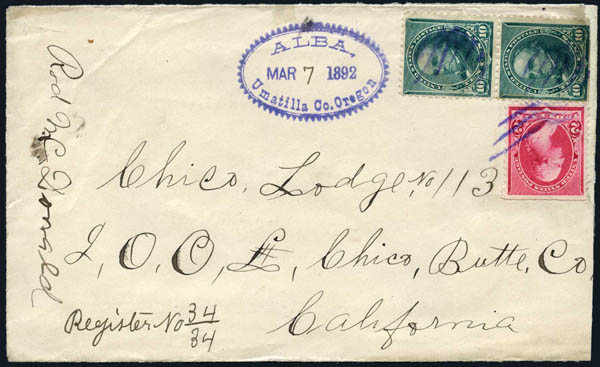 ALBA,
MAR 7 1892
Umatilla Co. Oregon
Rod McDonald
Chico, Lodge, No 113
I, O, O, F, Chico, Butte, Co
California
Register No 34
34